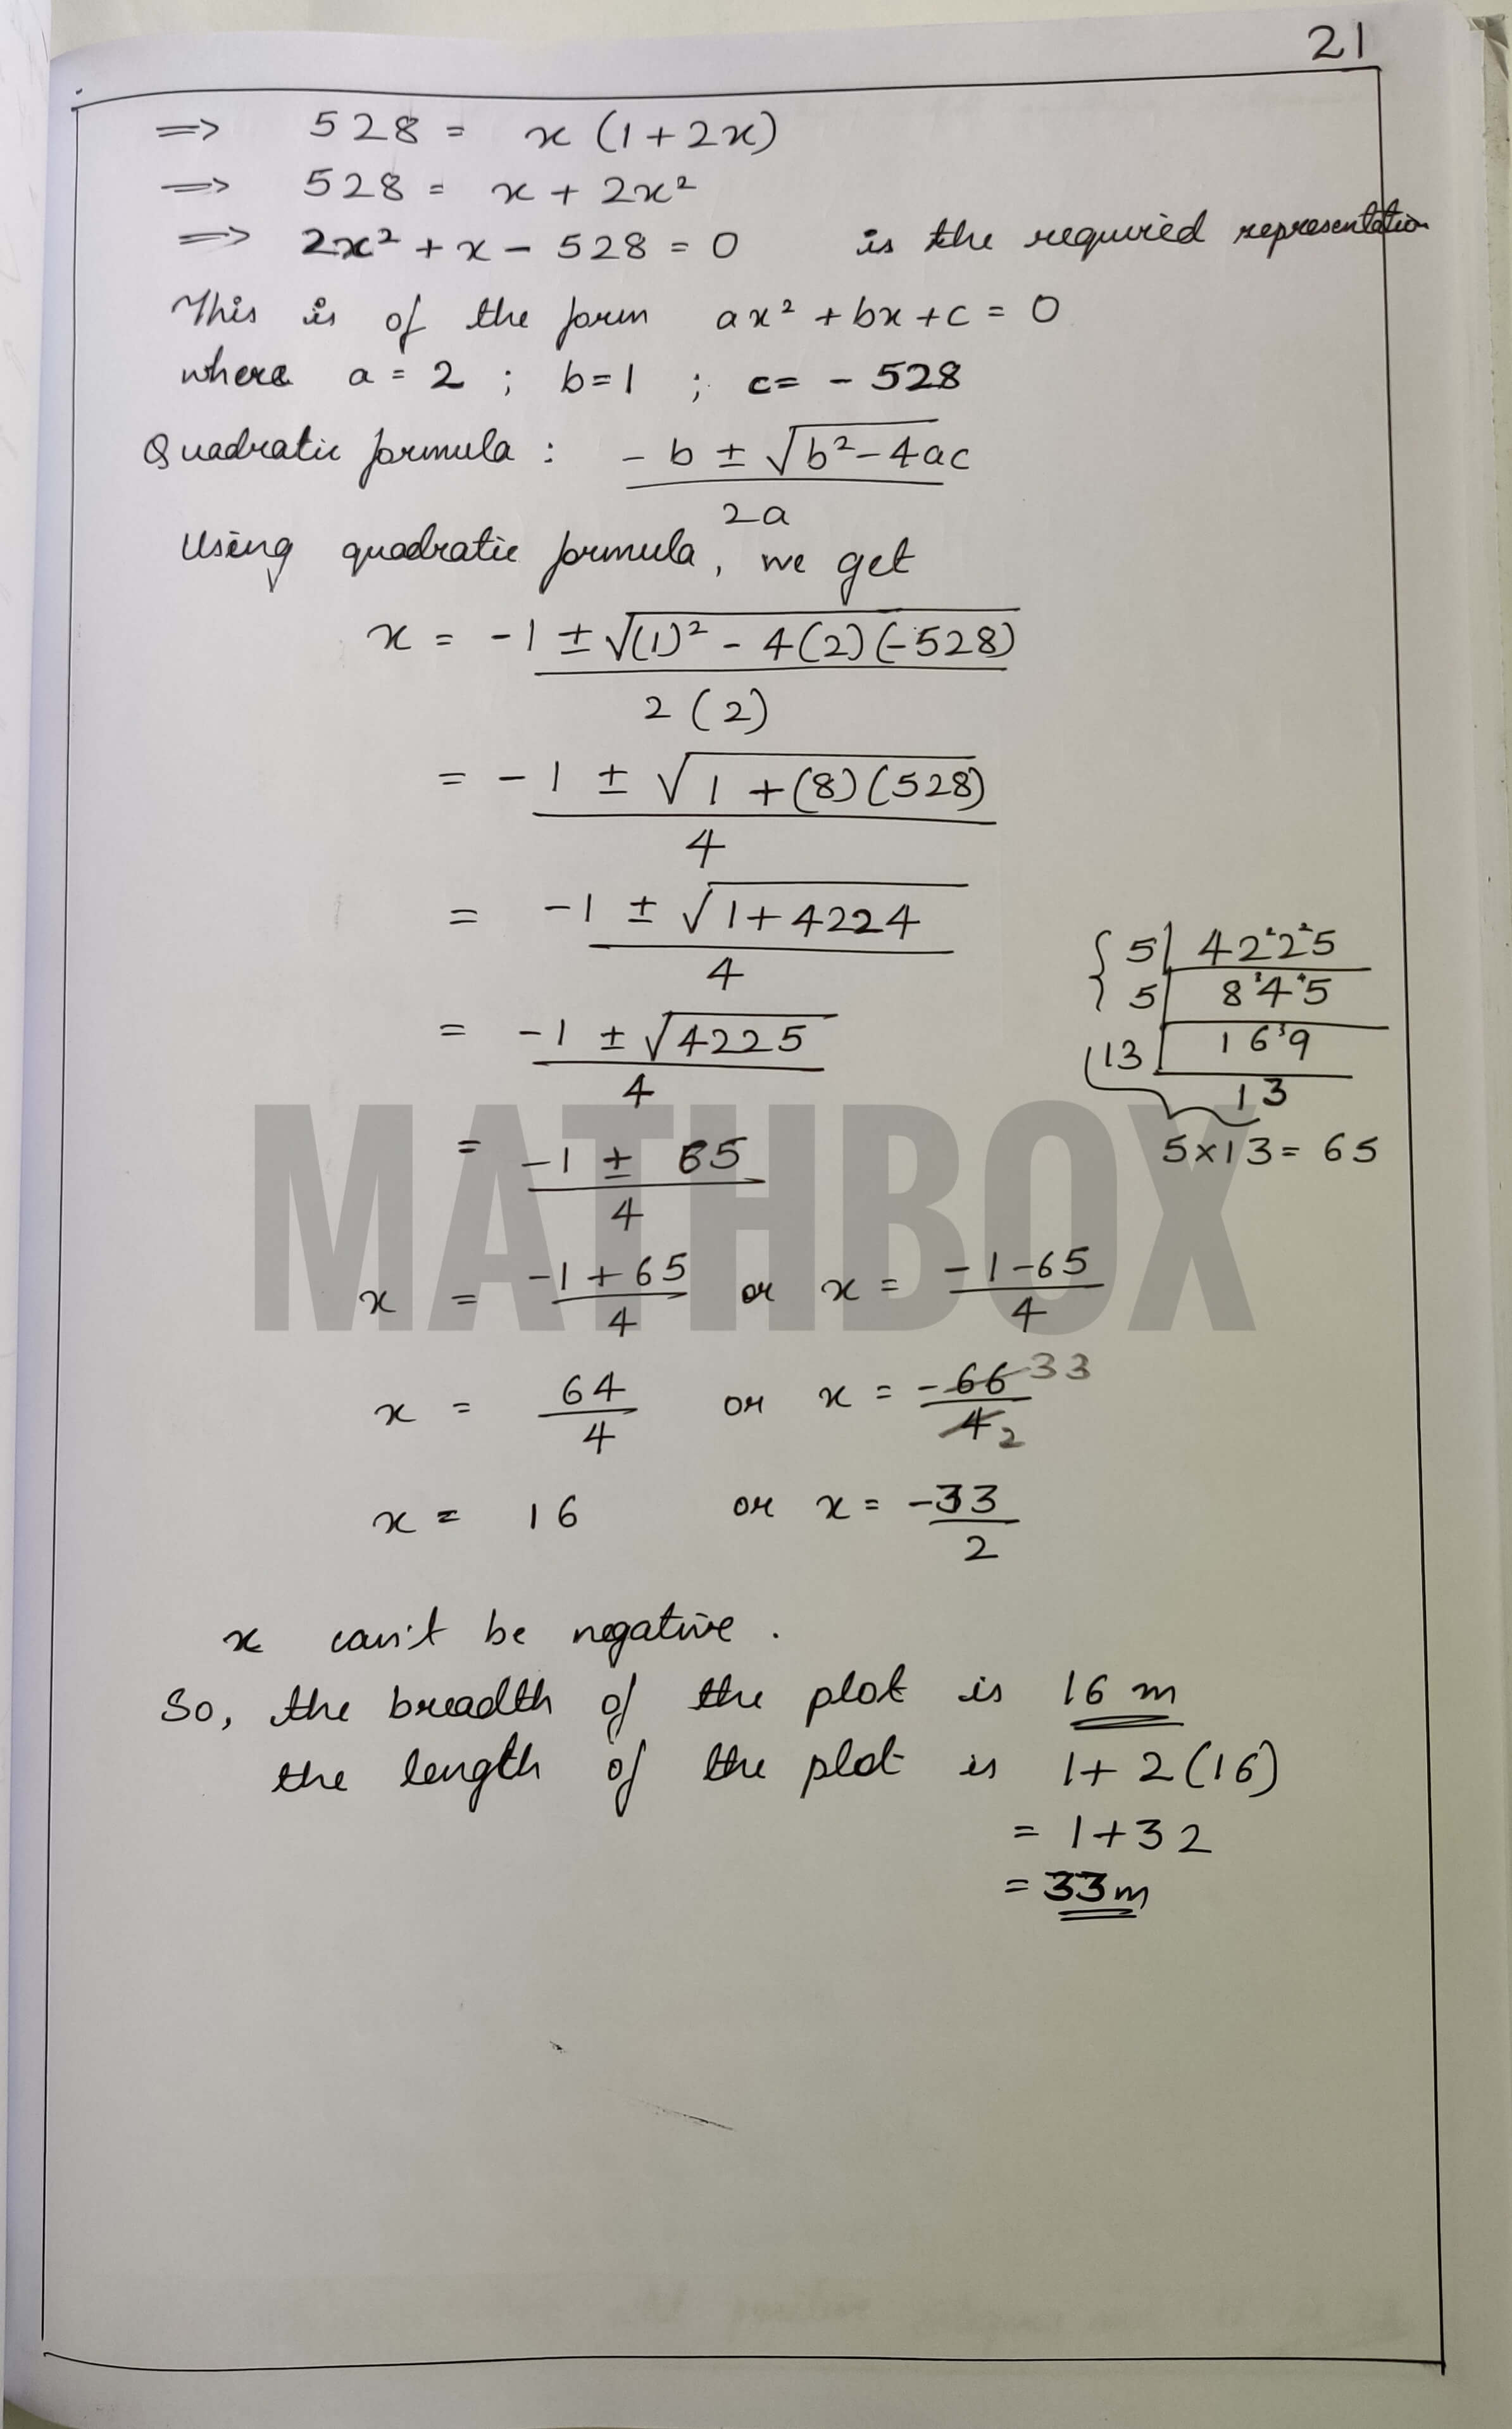 21
=> 528 = x (1+2x)
=> 528 = x + 2x²
=> 2x² + x - 528 = 0 is the required representation
This is of the form ax² + bx + c = 0
where a = 2 ; b=1 ; c= - 528
Quadratic formula : - b ± √b²-4ac
2a
Using quadratic formula, we get
x = -1 ± √(1)² - 4(2)(-528)
2(2)
= -1 ± √1 +(8)(528)
4
= -1 ± √1+4224
4
= -1 ± √4225
4
= -1 ± 65
4
x = -1+65 or x = -1-65
4 4
x = 64 or x = -66 33
4 4 2
x = 16 or x = -33
2
5 4225
5 845
13 169
13
5x13 = 65
x can't be negative.
So, the breadth of the plot is 16 m
the length of the plot is 1+ 2(16)
= 1+32
= 33m
MATHBOX